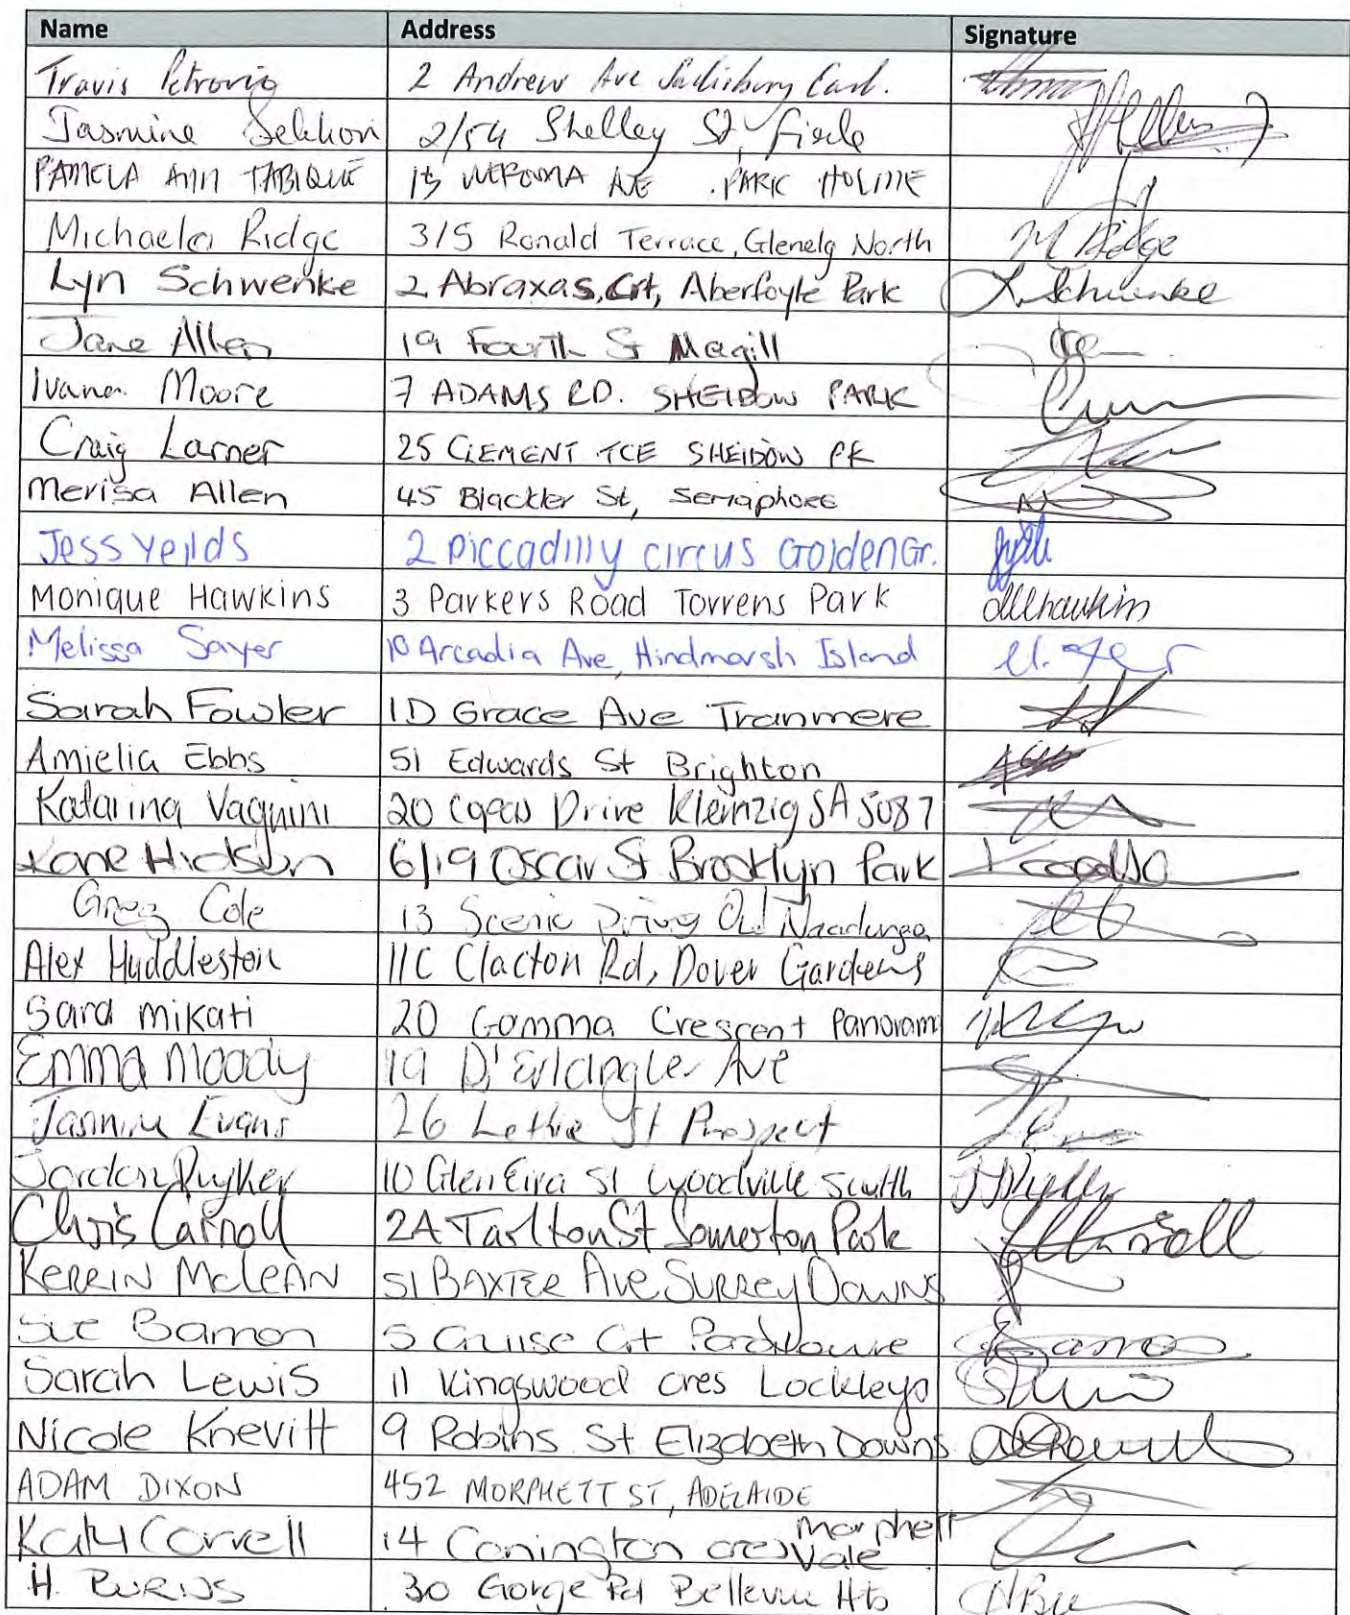 Name Address Signature
Travis Petrovig 2 Andrew Ave Salisbury East.
Jasmine Sekhon 2/54 Shelley St, Firle
PAMELA ANN TABIQUE 15 AVE PARK HOLME
Michaela Ridge 3/5 Ronald Terrace, Glenelg North M Ridge
Lyn Schwenke 2 Abraxas, Crt, Aberfoyle Park L. Schwenke
Jane Allen 19 Fourth St Magill
Ivana Moore 7 ADAMS RD. SHEIDOW PARK
Craig Larner 25 CLEMENT TCE SHEIDOW PK
Merisa Allen 45 Blackler St, Semaphore
Jess Yeilds 2 Piccadilly circus GoldenGr.
Monique Hawkins 3 Parkers Road Torrens Park Mhawkins
Melissa Sayer 10 Arcadia Ave, Hindmarsh Island
Sarah Fowler 1D Grace Ave Tranmere
Amielia Ebbs 51 Edwards St Brighton
Katarina Vagnini 20 Drive Klemzig SA 5087
Kane Hickson 6/19 Oscar St Brooklyn Park
Greg Cole 13 Scenic Drive Old Noarlunga
Alex Huddleston 11C Clacton Rd, Dover Gardens
Sara mikati 20 Gamma Crescent Panoram
Emma Moody 19 D'Erlanger Ave
Jasmine Evans 26 Lethie St Prospect
Jordan Ruyker 10 Glen Eira St Woodville South
Chris Carroll 2A Tarlton St Somerton Park
KERRIN McLEAN 51 BAXTER Ave SURREY DOWNS
Sue Bamon 5 Cruise Crt
Sarah Lewis 11 Kingswood cres Lockleys
Nicole Knevitt 9 Robins St Elizabeth Downs
ADAM DIXON 452 MORPHETT ST, ADELAIDE
Katy Correll 14 Conington cres Morphett Vale
H. BURNS 30 Gorge Rd Bellevue Hts